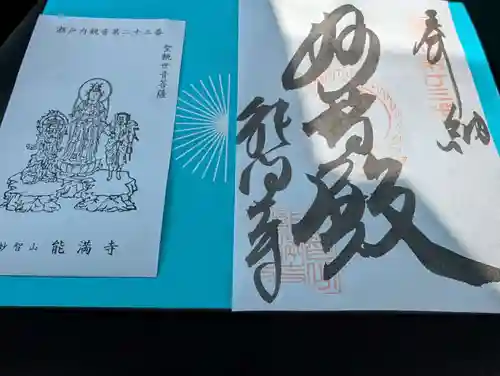 瀬戸内観音第二十三番
聖観世音菩薩
妙智山 能満寺
奉納
妙音殿
能満寺